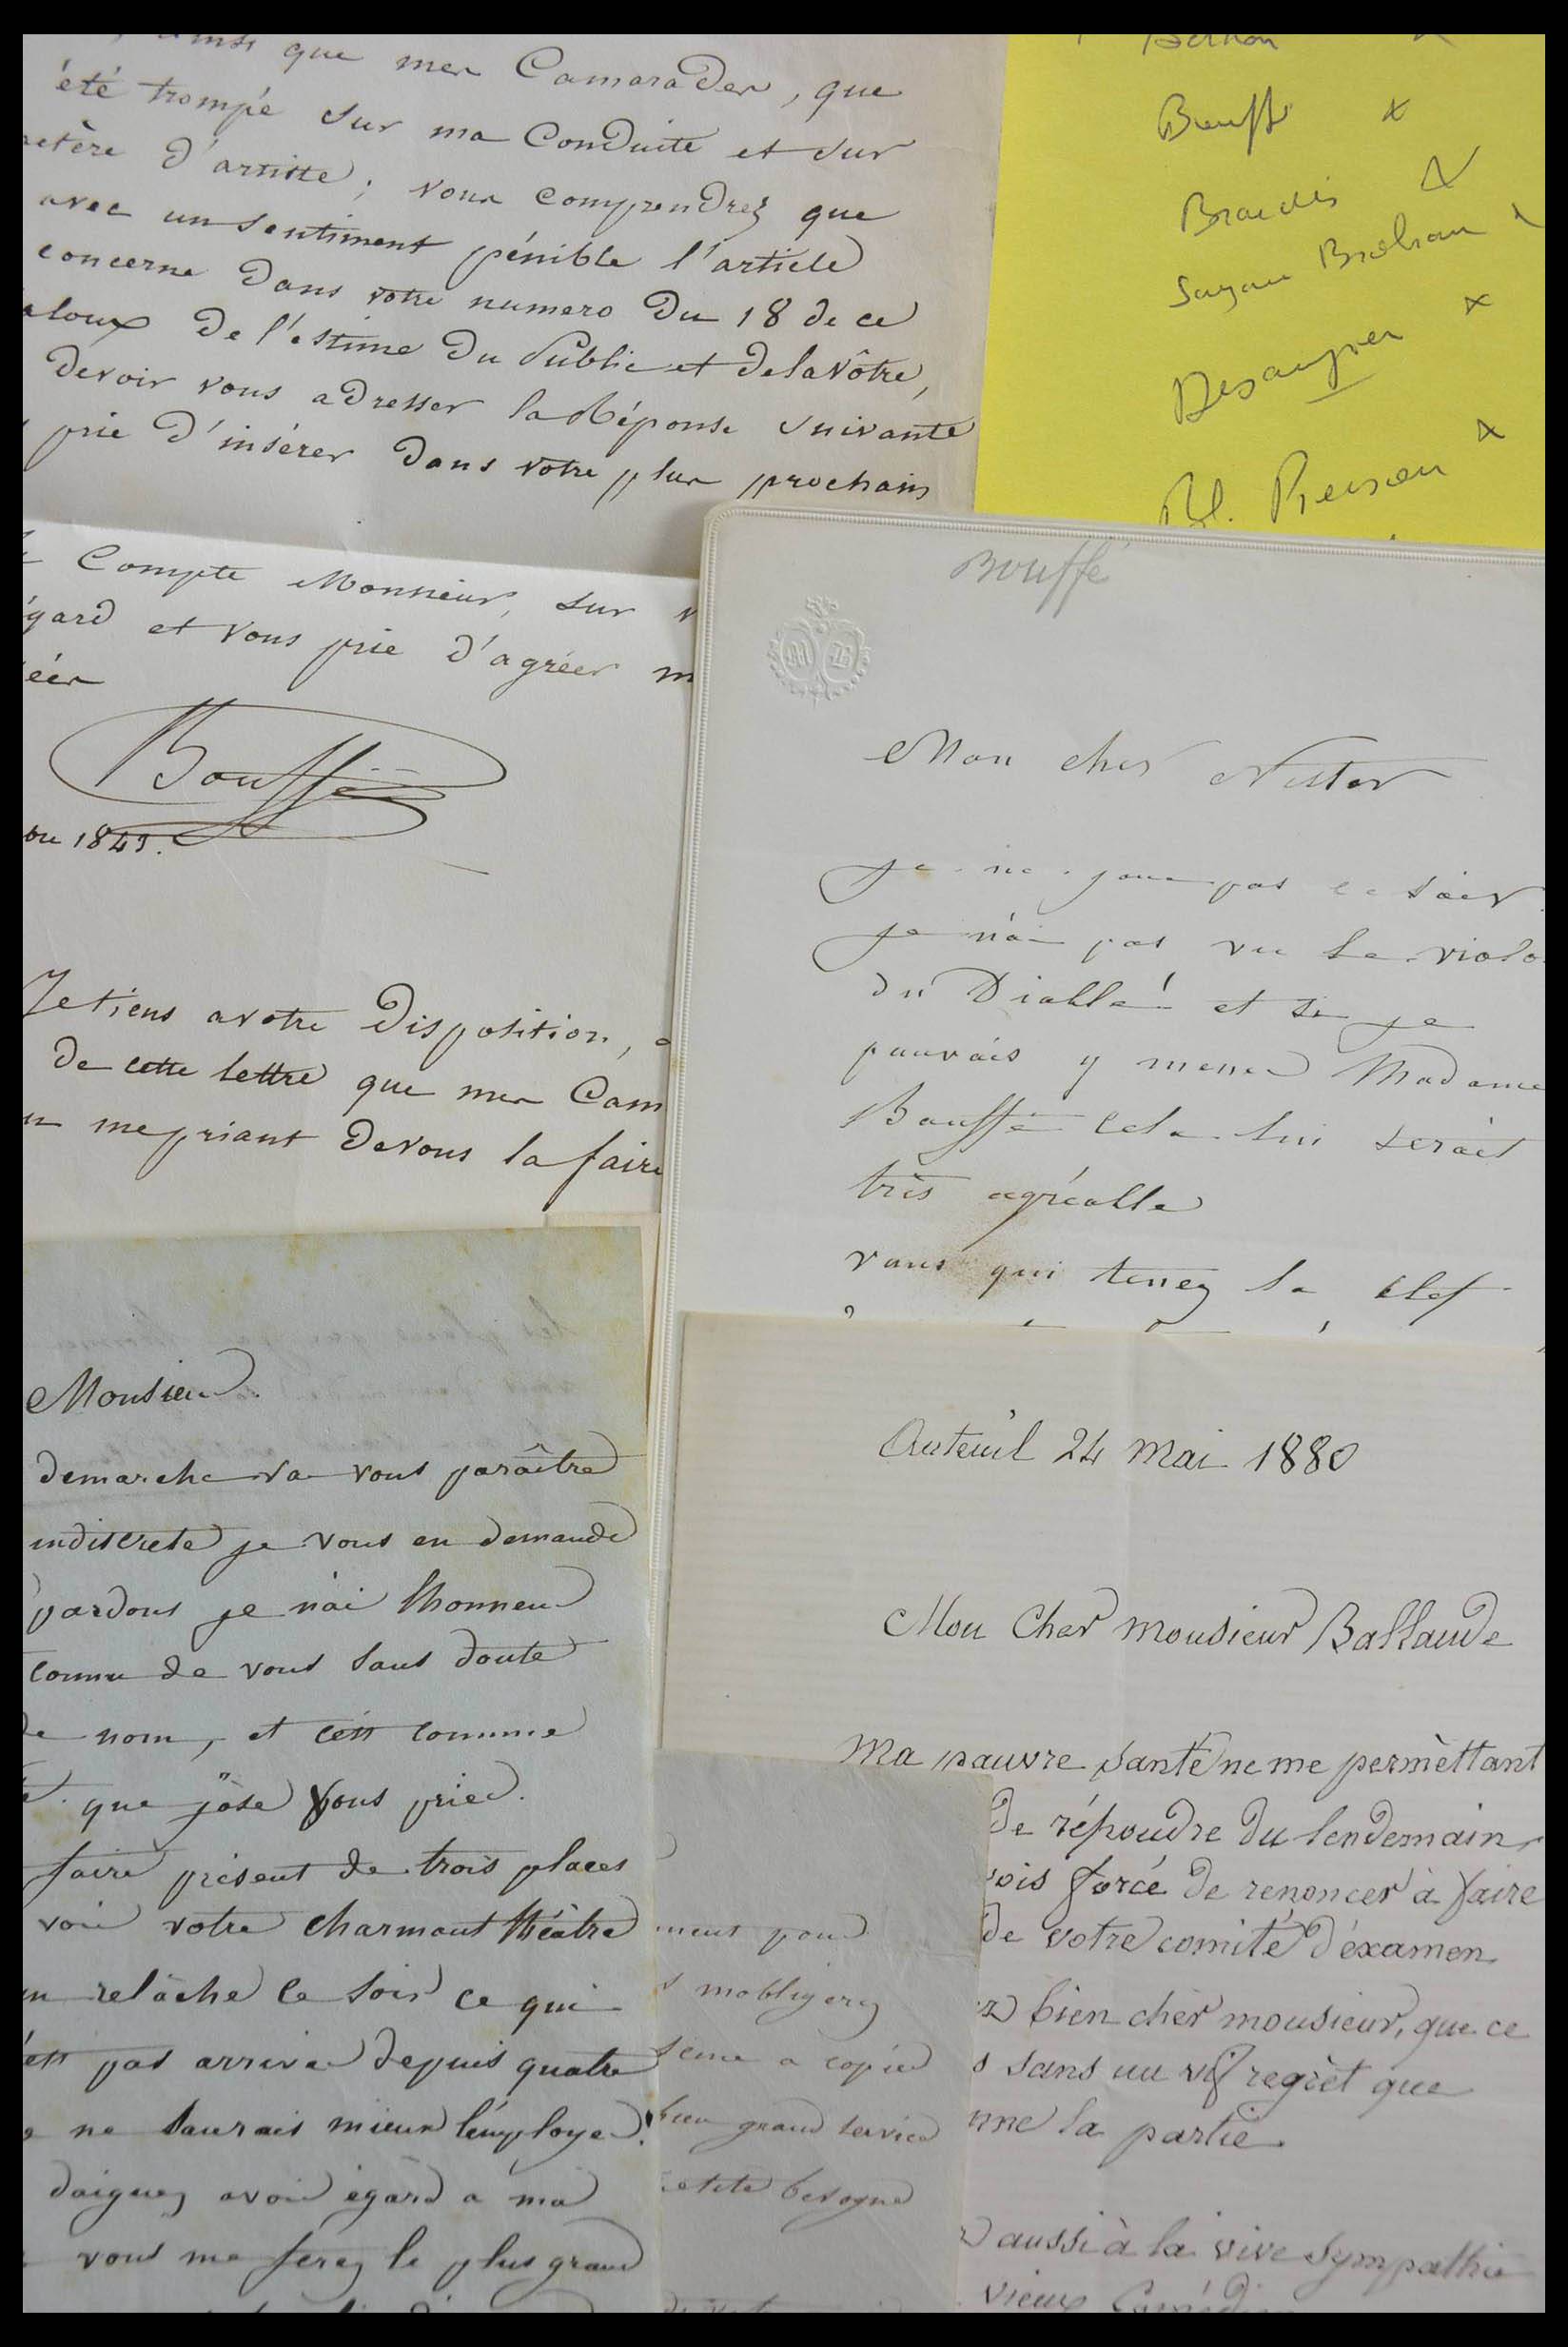 ainsi que mes Camarades, que
été trompé sur ma Conduite et sur
d'artiste; vous comprendrez que
avec un sentiment pénible l'article
concerne dans votre numero Du 18 de ce
aloux De l'estime Du Public et delavôtre,
Devoir vous adresser la Réponse suivante
prie D'insérer Dans votre plus prochain
Bouffé x
Brindis x
x
Desaugier x
x
Compte Monsieur, sur
égard et vous prie d'agréer
Bouffé
Jetiens avotre Disposition,
De cette lettre que mes Cam
mepriant Devous la faire
Bouffé
Mon cher Nestor
je ne joue pas ce soir
je n'ai pas vu le violo
du Diable! et si je
pouvais y mener Madame
Bouffé cela lui serait
très agréable
vous qui tenez la clef
Monsieur.
demarche va vous paraître
indiscrete je vous en demande
pardons je n'ai lhonneur
connu de vous sans doute
de nom, et cést comme
que jóse vous prier.
faire présent de trois places
voir votre charmant théâtre
relâche ce soir ce qui
ést pas arrivé depuis quatre
ne saurais mieux l'employer!
daignez avoir égard a ma
vous me ferez le plus grand
ment pour
s mobligerez
scene a copier
bien grand service
petite besogne
Auteuil 24 Mai 1880
Mon Cher monsieur Ballande
Ma pauvre santé ne me permèttant
De répondre Du lendemain,
vois forcé De renoncer à faire
de votre comité d'éxamen
ez bien chèr monsieur, que ce
s sans un vif regrèt que
nne la partie.
aussi à la vive sympathie
vieux Comédien